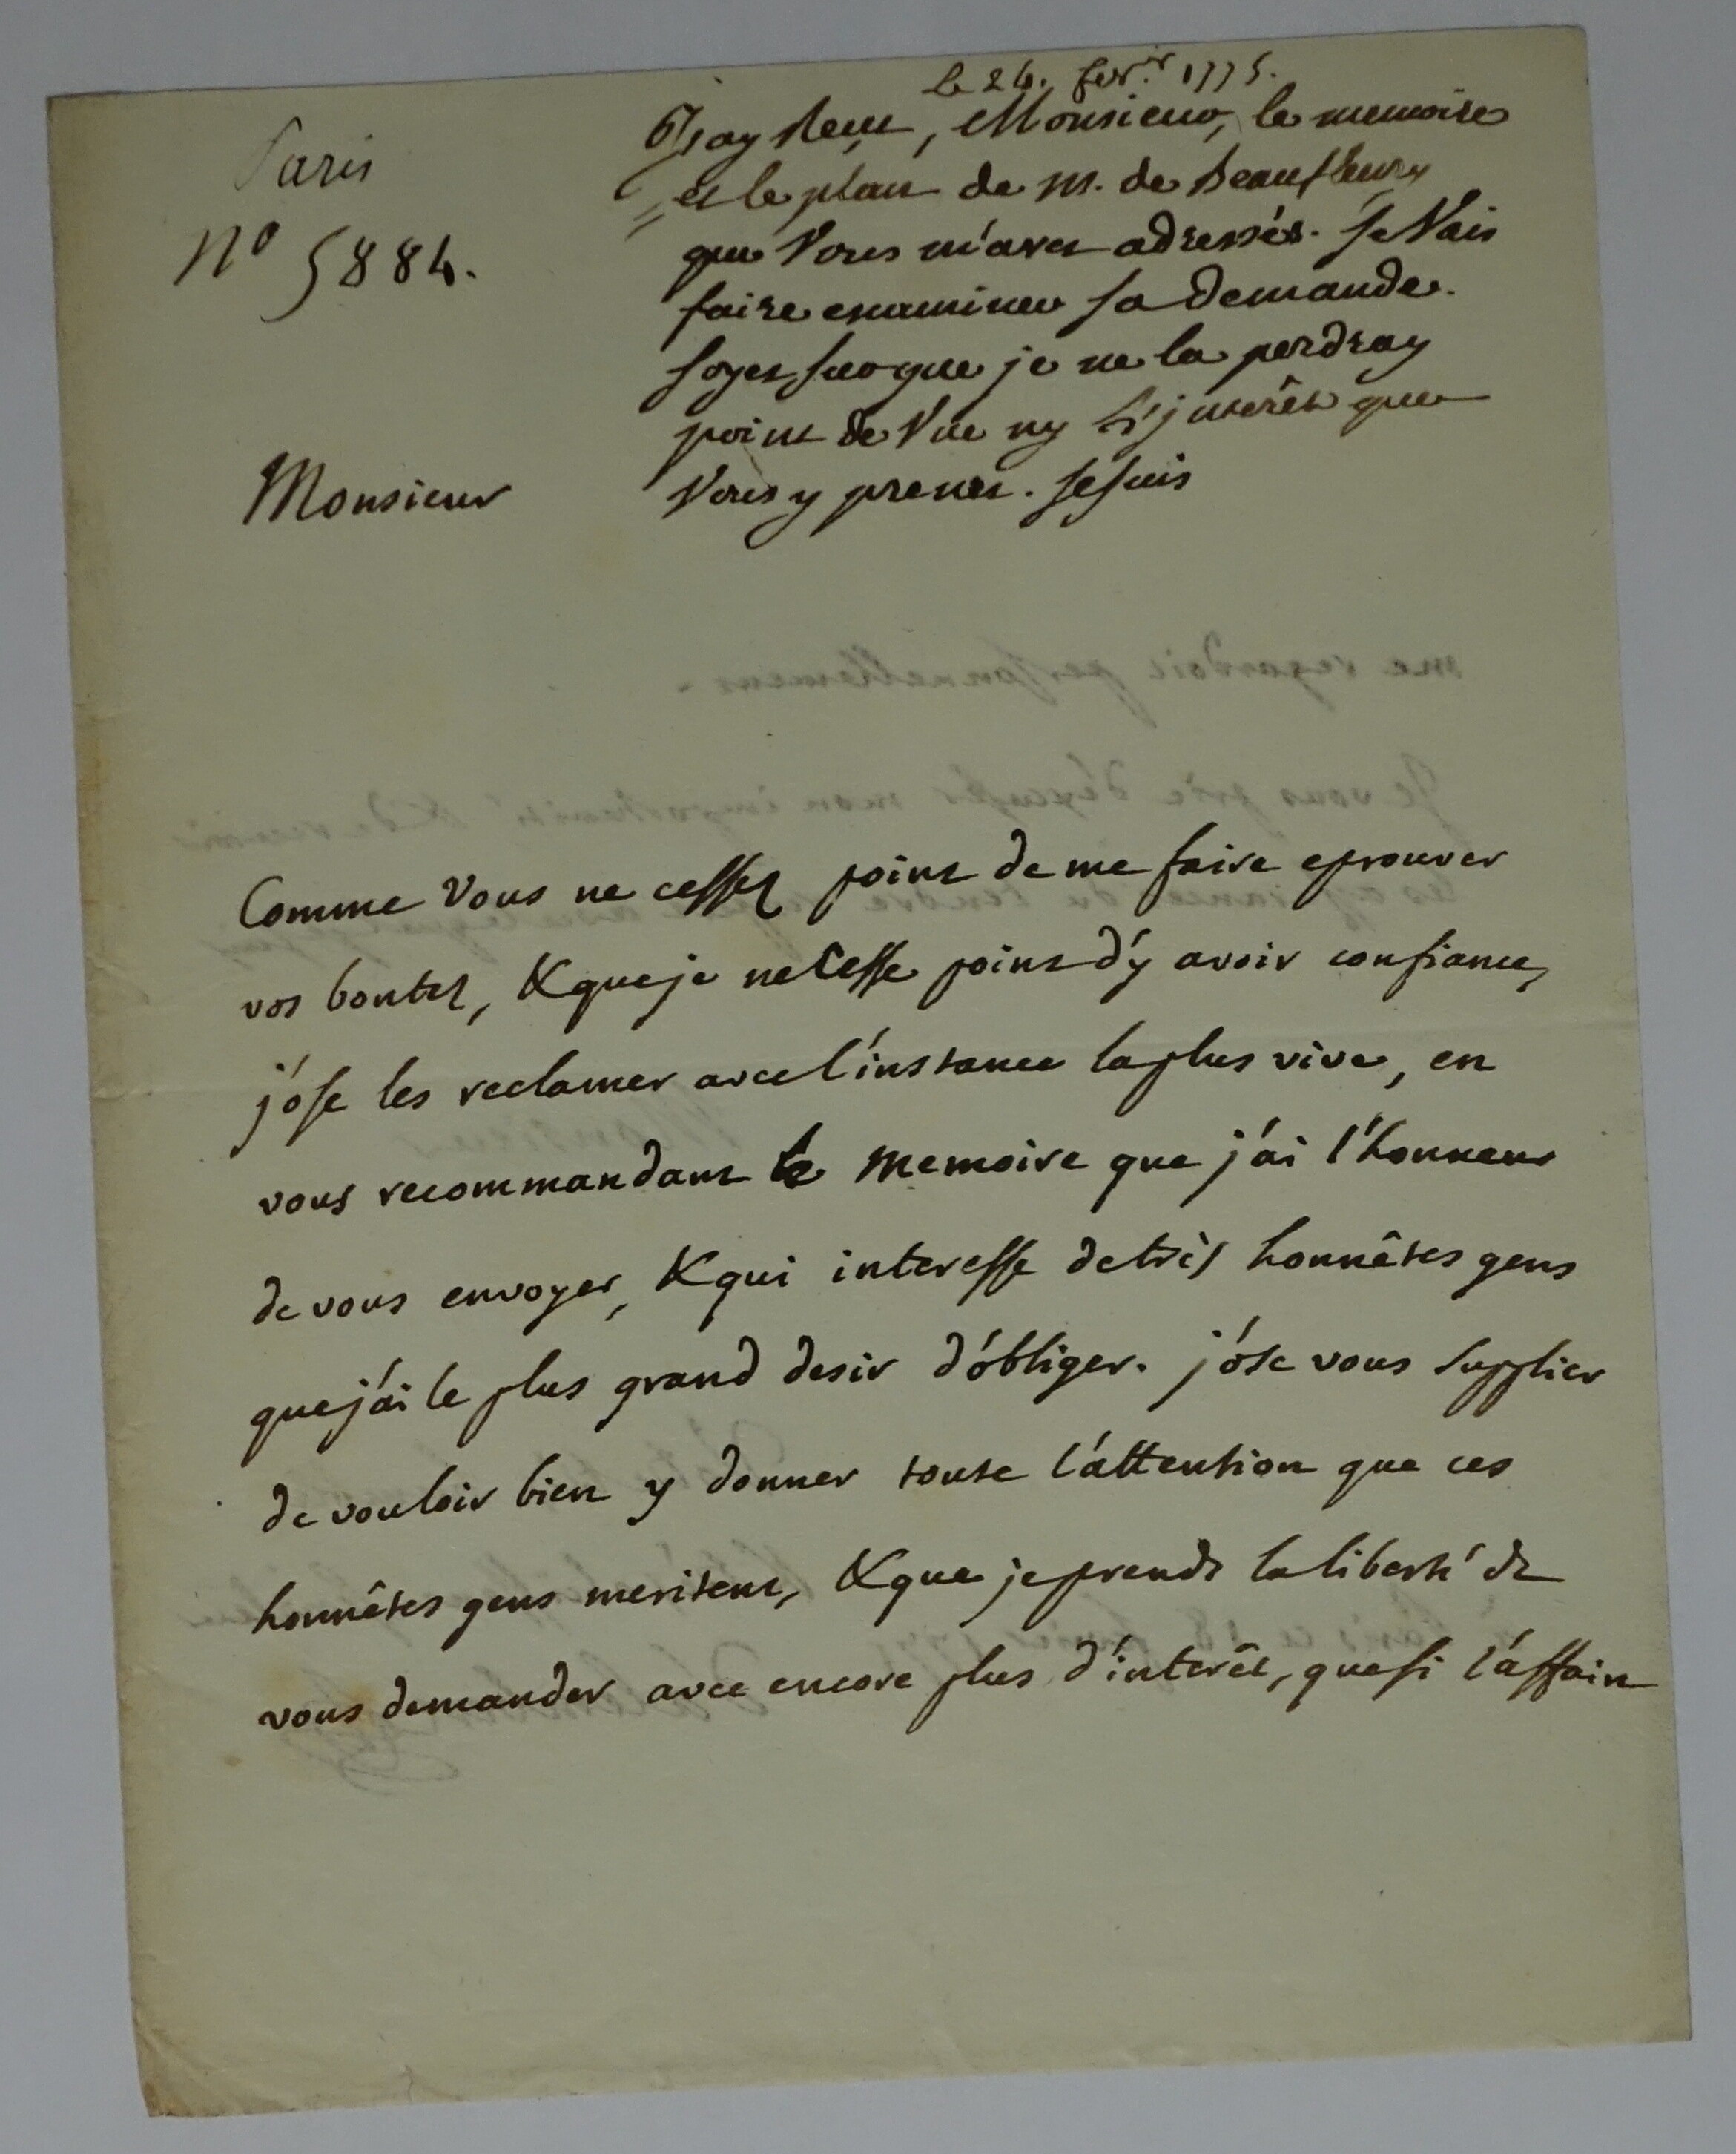 le 24. fev.r 1775.
Paris
N° 5884.
J'ay Reçu, Monsieur, le memoire
et le plan de M. de Beaufleury
que Vous m'avez adressés. Je Vais
faire examiner sa demande.
soyez sur que je ne la perdray
point de Vüe ny l'jnterêt que
Vous y prenez. Je suis
Monsieur
Comme Vous ne cessez point de me faire eprouver
vos bontez, & que je ne cesse point d'y avoir confiance,
j'ose les reclamer avec l'instance la plus vive, en
vous recommandant le memoire que j'ai l'honneur
de vous envoyer, & qui interesse de très honnêtes gens
que j'ai le plus grand desir d'obliger. j'ose vous supplier
de vouloir bien y donner toute l'attention que ces
honnêtes gens meritent, & que je prends la liberté de
vous demander avec encore plus d'interêt, que si l'affaire